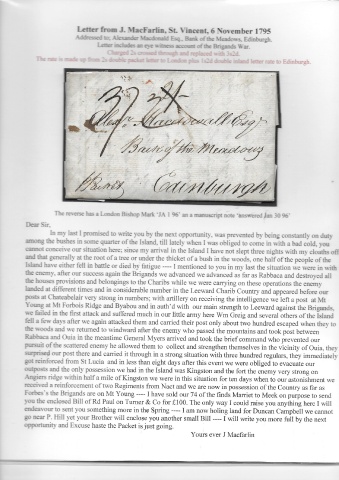 Letter from J. MacFarlin, St. Vincent, 6 November 1795
Addressed to; Alexander Macdonald Esq., Bank of the Meadows, Edinburgh.
Letter includes an eye witness account of the Brigands War.
Charged 2s crossed through and replaced with 3s2d.
The rate is made up from 2s double packet letter to London plus 1s2d double inland letter rate to Edinburgh.
Esqr
Bank of the Meadows
Edinburgh
The reverse has a London Bishop Mark 'JA 1 96' as a manuscript note 'answered Jan 30 96'
Dear Sir,
In my last I promised to write you by the next opportunity, was prevented by being constantly on duty
among the bushes in some quarter of the Island, till lately when I was obliged to come in with a bad cold, you
cannot conceive our situation here; since my arrival in the Island I have not slept three nights with my cloaths off
and that generally at the root of a tree or under the thicket of a bush in the woods, one half of the people of the
Island have either fell in battle or died by fatigue --- I mentioned to you in my last the situation we were in with
the enemy, after our success again the Brigands we advanced we advanced as far as Rabbaca and destroyed all
the houses provisions and belongings to the Charibs while we were carrying on these operations the enemy
landed at different times and in considerable number in the Leeward Charib Country and appeared before our
posts at Chateaubelair very strong in numbers; with artillery on receiving the intelligence we left a post at Mt
Young at Mt Forbois Ridge and Byabou and in auth'd with our main strength to Leeward against the Brigands,
we failed in the first attack and suffered much in our little army here Wm Greig and several others of the Island
fell a few days after we again attacked them and carried their post only about two hundred escaped when they to
the woods and we returned to windward after the enemy who passed the mountains and took post between
Rabbaca and Ouia in the meantime General Myers arrived and took the brief command who prevented our
pursuit of the scattered enemy he allowed them to collect and strengthen themselves in the vicinity of Ouia, they
surprised our post there and carried it through in a strong situation with three hundred regulars, they immediately
got reinforced from St Lucia and in less than eight days after this event we were obliged to evacuate our
outposts and the only possession we had in the Island was Kingston and the fort the enemy very strong on
Angiers ridge within half a mile of Kingston we were in this situation for ten days when to our astonishment we
received a reinforcement of two Regiments from Nact and we are now in possession of the Country as far as
Forbes's the Brigands are on Mt Young --- I have sold our 74 of the finds Marriet to Meek on purpose to send
you the enclosed Bill of Rd Paul on Turner & Co for £100. The only way I could raise you anything here I will
endeavour to sent you something more in the Spring --- I am now holing land for Duncan Campbell we cannot
go near P. Hill yet your Brother will enclose you another small Bill --- I will write you more full by the next
opportunity and Excuse haste the Packet is just going.
Yours ever J Macfarlin